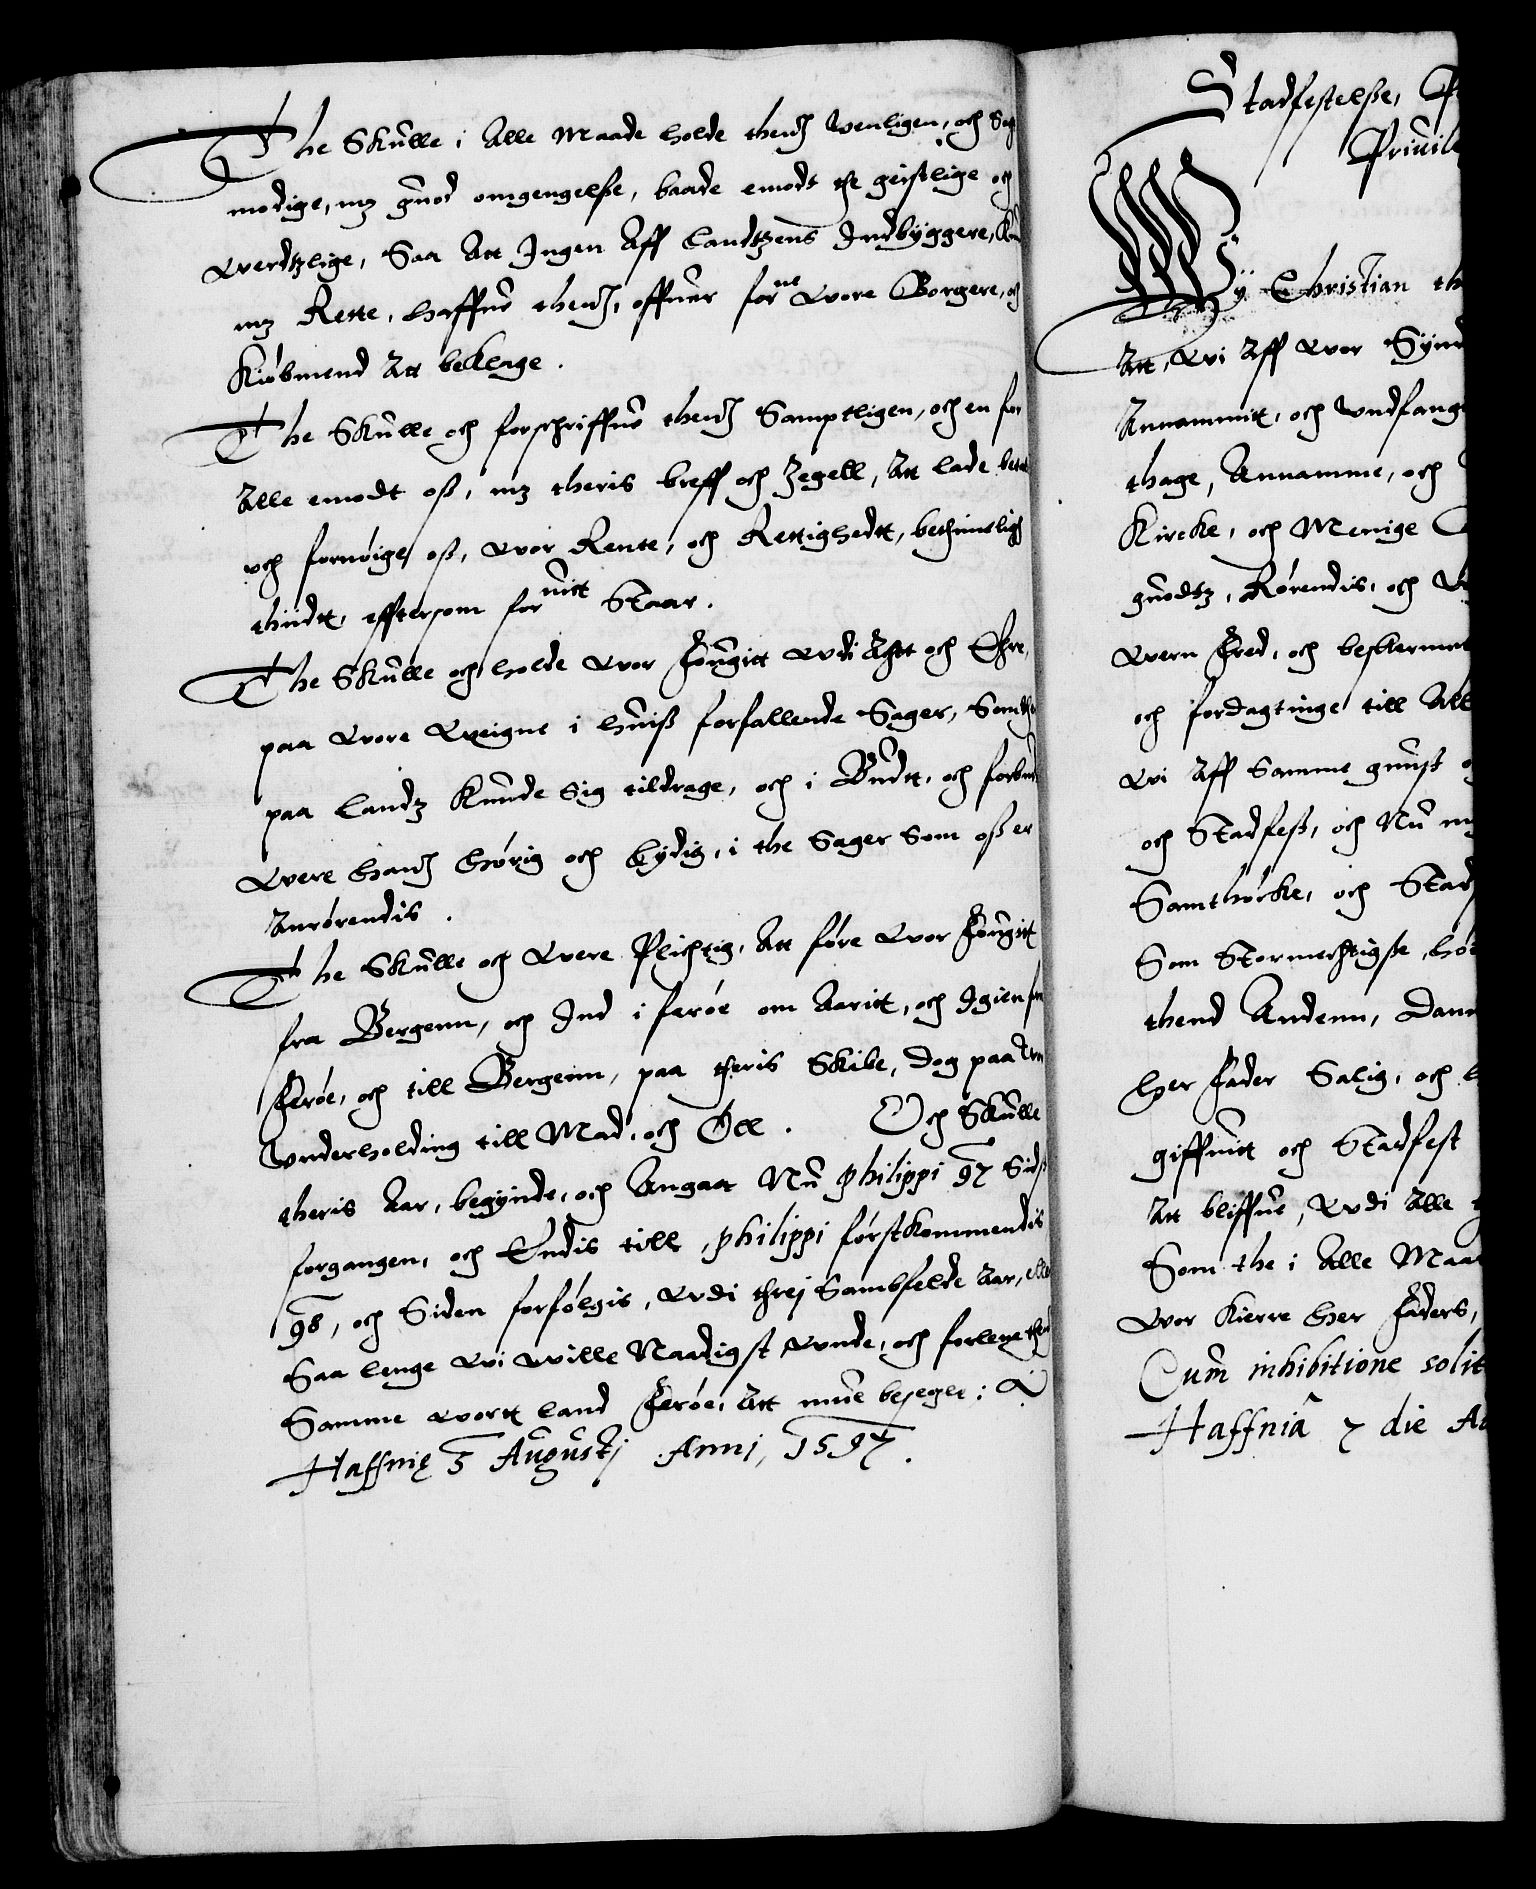 The Skulle i Alle Maade holde thend Wenligen, och Sag
modige, mz guod omgengelsse, baade emodt the geistlige och
Werdtzlige, Saa Att Ingen Aff Landtzens Indbyggere, Kand
mz Rette, haffue thend, offuer forne Wore Borgere, och
Kiøbmend Att beklage.
The Skulle och forschriffue thend Samptligen, och en for
Alle emodt oss, mz theris breff och Zegell, Att lade betale
och fornøige oss, Wor Rente, och Rettighedt, bethimeligh
thiidt, efftersom fornitt Staar.
The Skulle och holde Wor Fougitt Wdi Agtt och Ehre,
paa Wore Weigne i huiss forfallende Sager, Som ther
paa Landz Kunde sig tildrage, och i Budtt, och forbud
Were hand hørig och Lydig, i the Sager Som oss er
Anrørendis.
The Skulle och Were Plichtig, Att føre Wor Fougitt
fra Bergenn, och Ind i ferøe om Aaritt, och Igien fra
Ferøe, och till Bergenn, paa theris Skibe, dog paa
Wnderholding till Mad, och Øll. Och Skulle
theris Aar, begynde, och Angaa Nu philippi 97 Sidst
forgangen, och Endis till, philippi førstkommendis
98, och Siden forfølgis, Wdi threj Sambfelde Aar, eller
Saa lenge Wi Wille Naadigst Wnde, och forlene them
Samme Wortt Land Ferøe, Att mue besegle;
Haffnię 3 Augustj Annj, 1597.
Stadfestelsse,
Priuile
Wy Christian th
Att, Wi Aff Wor Synd
Annammitt, och Wndfang
thage, Annamme, och
Kircke, och Menige
guodtz, Rørendis, och
Wern Fred, och beskermel
och fordagtinge till All
Wi Aff Samme gunst
och Stadfest, och Nu mz
Samthøcke, och Stad
Som Stormechtigste, Høi
thend Andenn, Dan
Her Fader Salig, och
giffuitt och Stadfest
Att bliffue, Wdi Alle
Som the i Alle Maa
Wor Kierre Her Faders,
Cum inhibitione solit
Haffniâ 7 die A